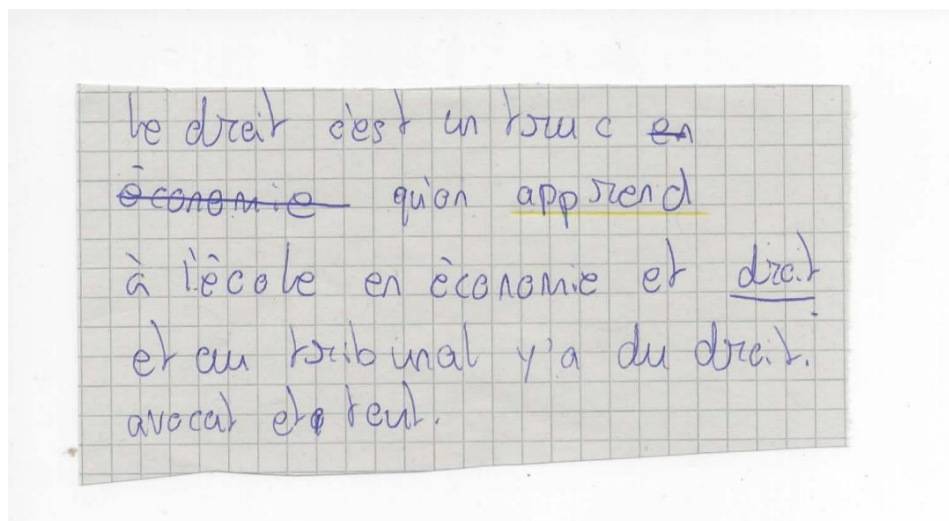 le droit c'est un truc en
économie qu'on apprend
à l'école en économie et droit
et au tribunal y'a du droit.
avocat et tout.